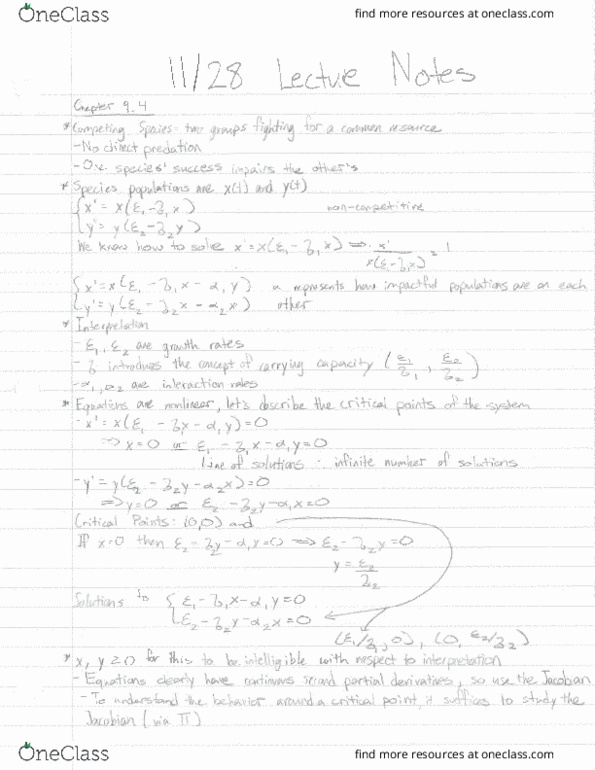 OneClass
find more resources at oneclass.com
11/28 Lectue Notes
Chapter 9.4
* Competing Species = two groups fighting for a common resource
- No direct predation
- One species' success impairs the other's
* Species populations are x(t) and y(t)
{ x' = x(ε₁-ʒ₁x) non-competitive
{ y' = y(ε₂-ʒ₂y)
We know how to solve x' = x(ε₁-ʒ₁x) ⟹ x'/(x(ε₁-ʒ₁x)) = 1
{ x' = x(ε₁-ʒ₁x-α₁y) α represents how impactful populations are on each
{ y' = y(ε₂-ʒ₂x-α₂x) other
* Interpretation
- ε₁, ε₂ are growth rates
- ʒ introduces the concept of carrying capacity (ε₁/ʒ₁, ε₂/ʒ₂)
- α₁, α₂ are interaction rates
* Equations are nonlinear, let's describe the critical points of the system
- x' = x(ε₁-ʒx-α₁y)=0
⟹ x=0 or ε₁-ʒ₁x-α₁y=0
Line of solutions infinite number of solutions
- y' = y(ε₂-ʒ₂y-α₂x)=0
⟹ y=0 or ε₂-ʒ₂y-α₁x=0
Critical Points: (0,0) and
If x=0 then ε₂-ʒ₂y-α₁y=0 ⟹ ε₂-ʒ₂y=0
y = ε₂/ʒ₂
Solutions to { ε₁-ʒ₁x-α₁y=0
{ ε₂-ʒ₂y-α₂x=0
(ε₁/ʒ₁,0), (0, ε₂/ʒ₂)
* x, y ≥ 0 for this to be intelligible with respect to interpretation
- Equations clearly have continuous second partial derivatives, so use the Jacobian
- To understand the behavior around a critical point, it suffices to study the
Jacobian (via TT)
OneClass
find more resources at oneclass.com